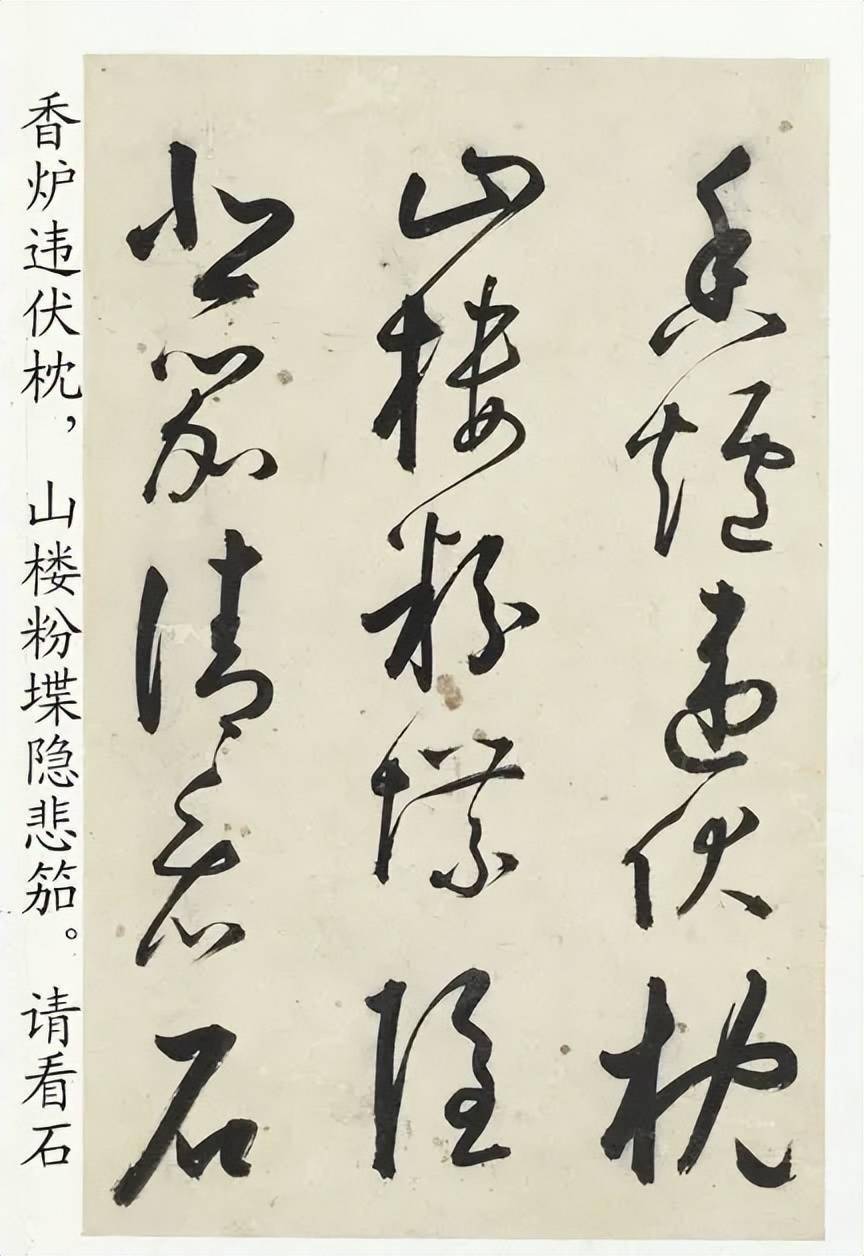 香爐違伏枕
山樓粉堞隱
悲笳請看石
香炉违伏枕，山楼粉堞隐悲笳。请看石